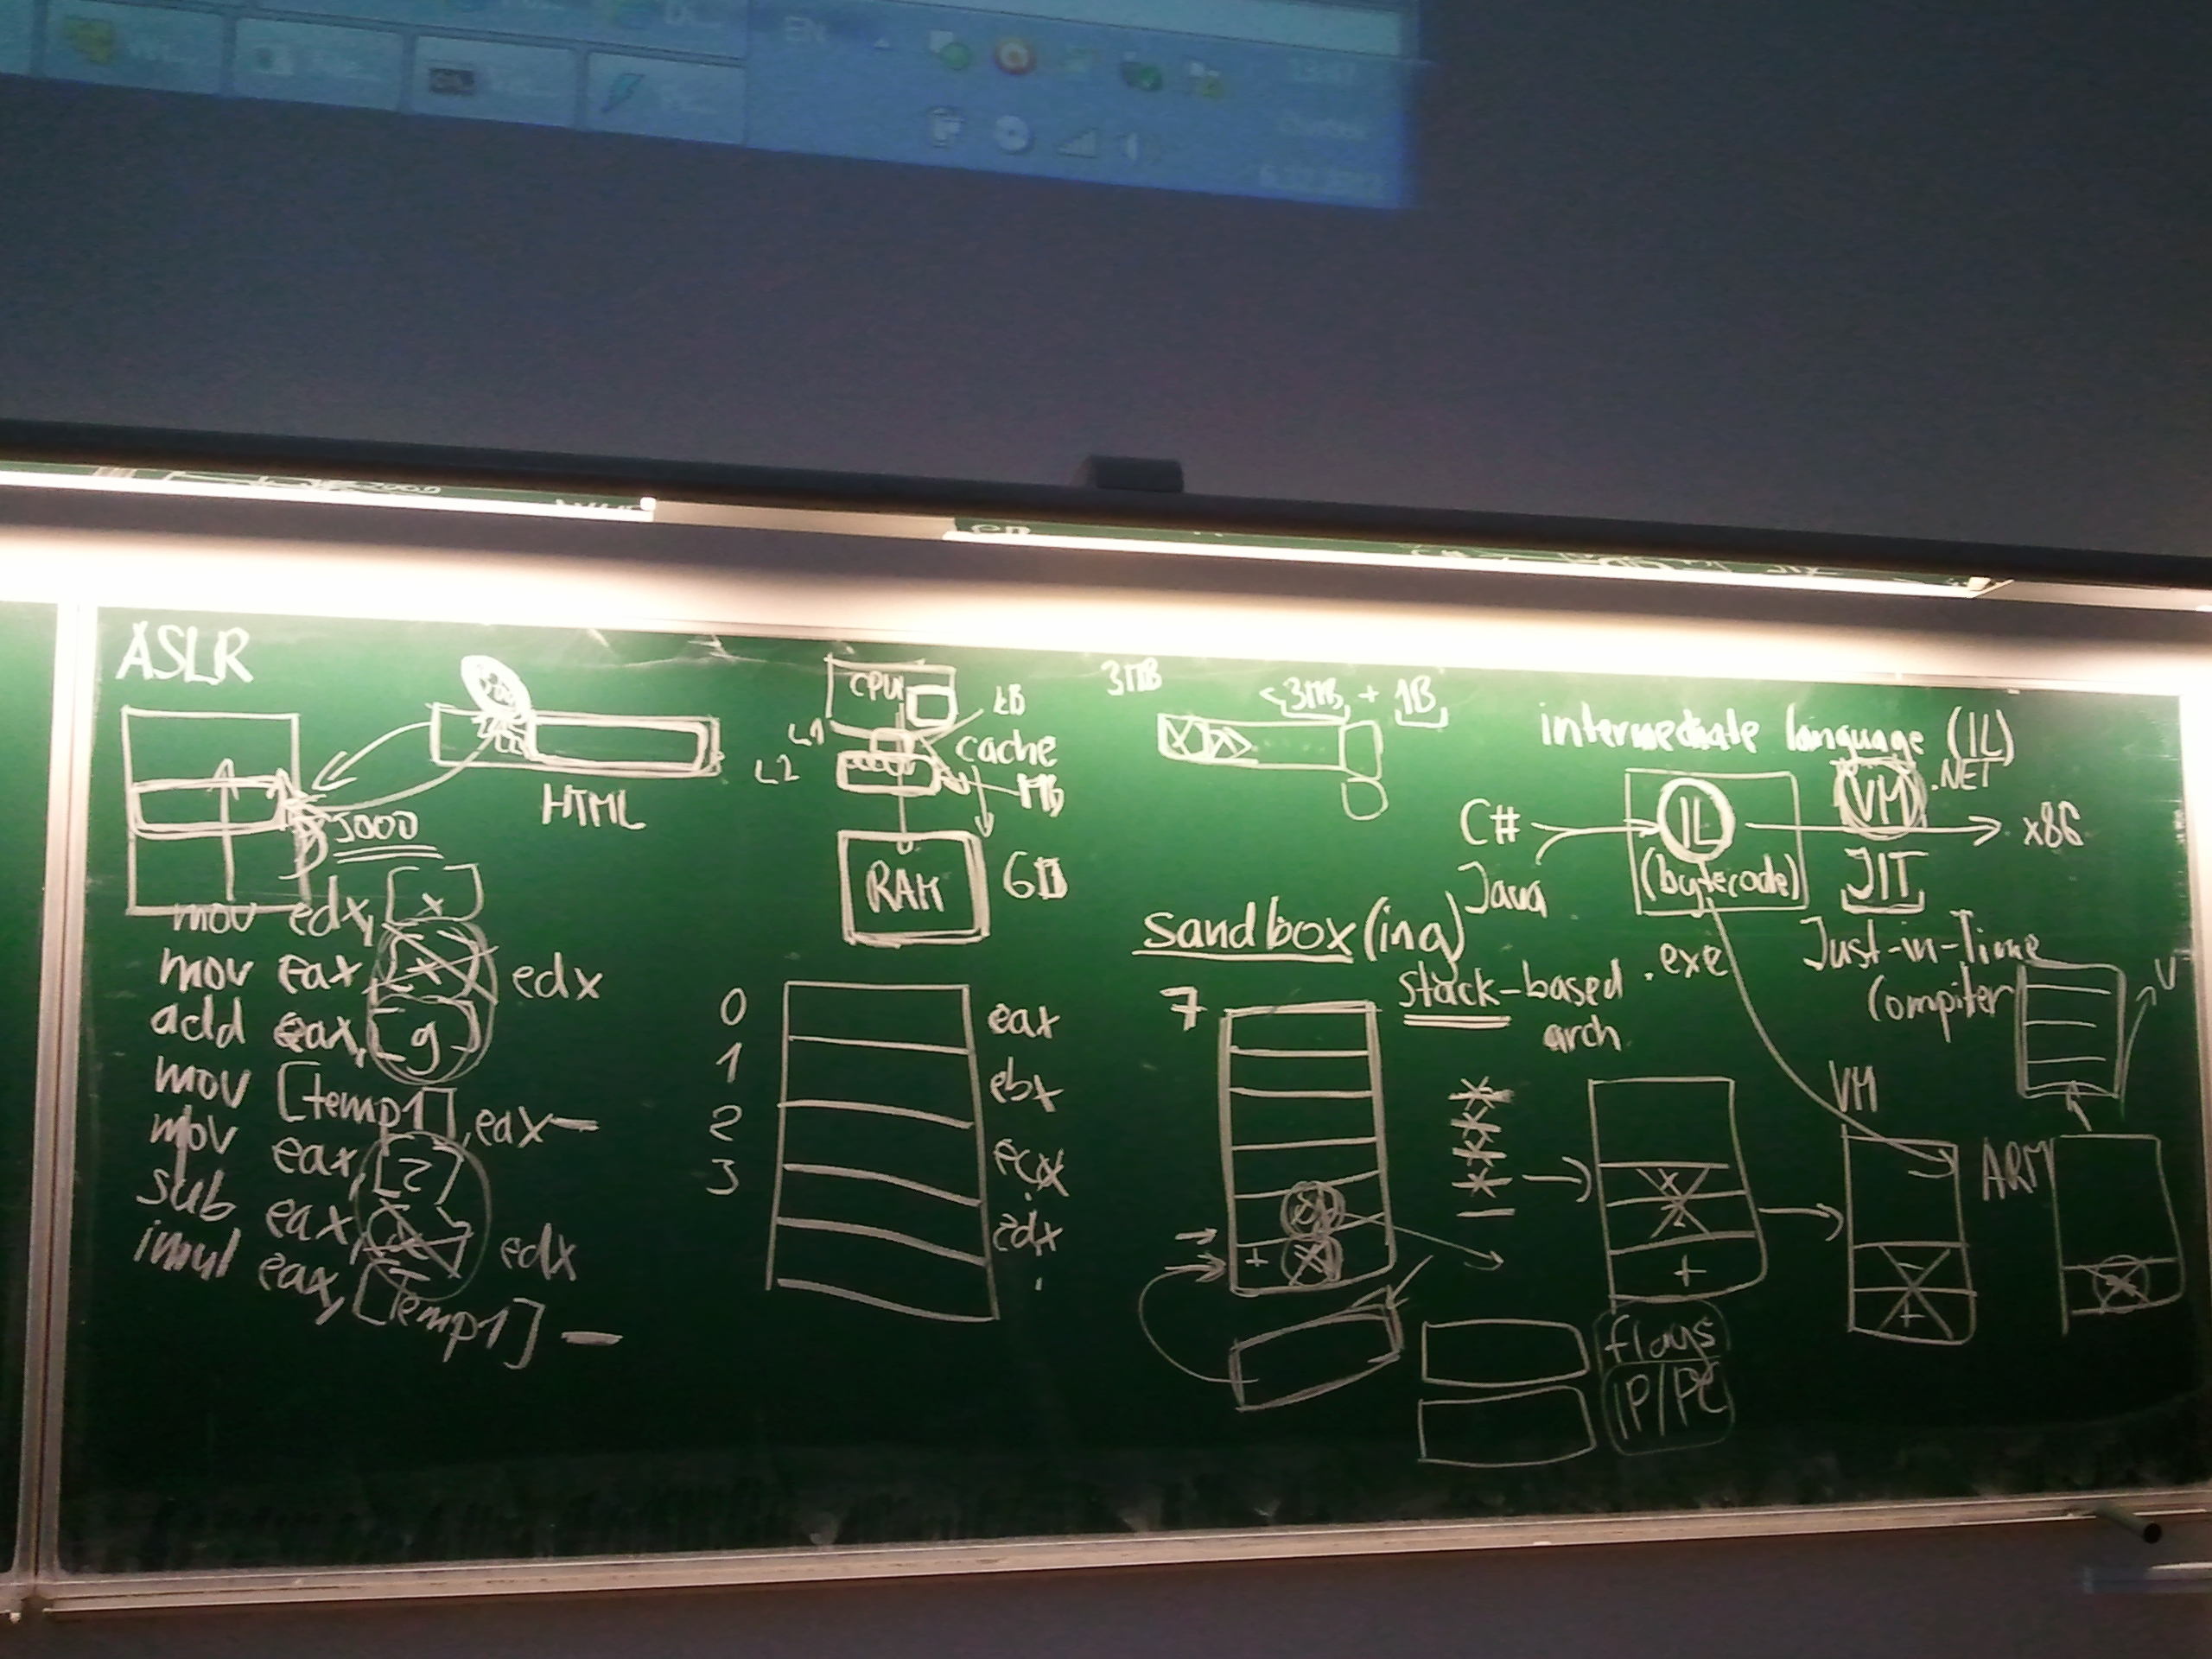 EN
ASLR
HTML
5000
mov edx, [x]
mov eax, [x] edx
add eax, [y]
mov [temp1], eax
mov eax, [z]
sub eax, edx
imul eax, [temp1]
CPU
kB
L1
cache
L2
MB
RAM
GB
0 eax
1 ebx
2 ecx
3 edx
3MB
<3MB + 1B
intermediate language (IL)
.NET
C#
IL
VM
x86
Java
(bytecode)
JIT
sandbox(ing)
.exe
Just-in-Time
compiler
stack-based
arch.
7
VM
ARM
V
+
+
+
flags
IP/PC